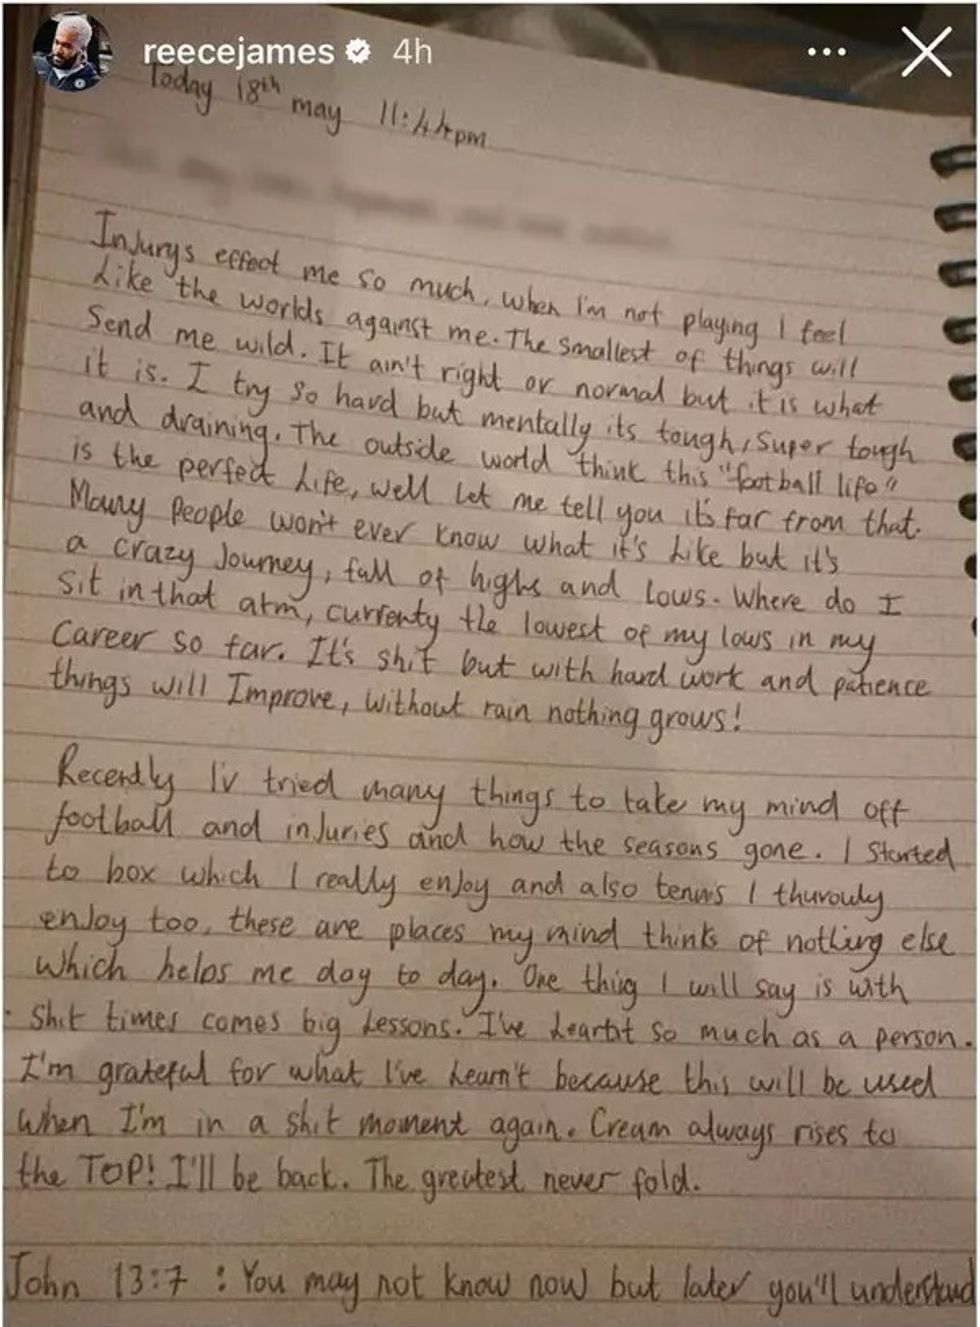 reecejames 4h
Today 18th may 11:44pm
Injurys effect me so much, when I'm not playing I feel
Like the worlds against me. The smallest of things will
Send me wild. It ain't right or normal but it is what
it is. I try so hard but mentally its tough, Super tough
and draining. The outside world think this "football life"
is the perfect Life, well let me tell you it's far from that.
Many People won't ever know what it's Like but it's
a crazy Journey, full of highs and Lows. Where do I
Sit in that atm, currenty the lowest of my lows in my
Career so far. It's shit but with hard work and patience
things will Improve, without rain nothing grows!
Recently I'v tried many things to take my mind off
football and injuries and how the seasons gone. I Started
to box which I really enjoy and also tennis I thurouly
enjoy too, these are places my mind thinks of nothing else
which helps me day to day. One thing I will say is with
Shit times comes big Lessons. I've Learnt so much as a person.
I'm grateful for what I've Learn't because this will be used
when I'm in a shit moment again. Cream always rises to
the TOP! I'll be back. The greatest never fold.
John 13:7 : You may not know now but later you'll understand